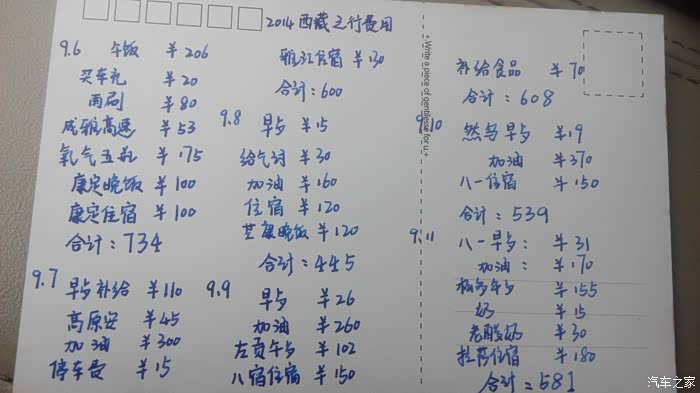 2014西藏之行费用
9.6 午饭 ¥206
买车 ¥20
雨刷 ¥80
成雅高速 ¥53
氧气五瓶 ¥175
康定晚饭 ¥100
康定住宿 ¥100
合计:734
9.7 早歺补给 ¥110
高原安 ¥45
加油 ¥300
停车费 ¥15
雅江住宿 ¥130
合计:600
9.8 早歺 ¥15
给气 ¥30
加油 ¥160
住宿 ¥120
芒康晚饭 ¥120
合计:445
9.9 早歺 ¥26
加油 ¥260
左贡午歺 ¥102
八宿住宿 ¥150
+ Write a piece of gentlesse for u +
补给食品 ¥70
合计:608
9.10 然乌早歺 ¥19
加油 ¥370
八一住宿 ¥150
合计:539
9.11 八一早歺: ¥31
加油: ¥170
松多午歺 ¥155
奶 ¥15
老酸奶 ¥30
拉萨住宿 ¥180
合计=581
汽车之家